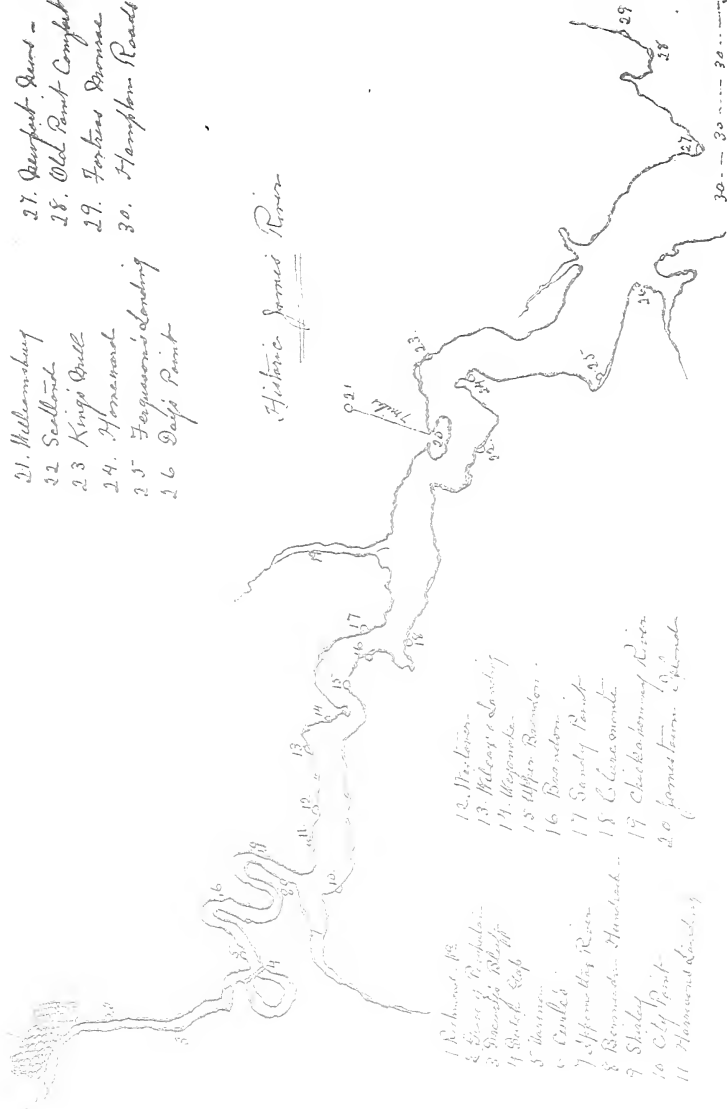 Historic James River
1 Richmond. Va
3 Drewry's Bluff
4 Dutch Gap
5 Varina
6 Curle's
7 Appomattox River
8 Bermuda Hundred
9 Shirley
10 City Point
11 Harrisons Landing
12. Westover
13. Wilcox's Landing
14. Weyanoke
15 Upper Brandon.
16 Brandon
17 Sandy Point
18 Claremont
19 Chickahominy River
20 Jamestown Island
21. Williamsburg
22 Scotland
23 Kings Mill
24. Homewood
25 Fergusson's Landing
26 Day's Point
27. Newport News -
28. Old Point Comfort
29. Fortress Monroe
30. Hampton Roads
7 miles
3
4
6
9
10
11
12
13
14
15
16
17
18
19
20
21
22
23
24
25
26
27
28
29
30 --- 30 ---- 30 ---